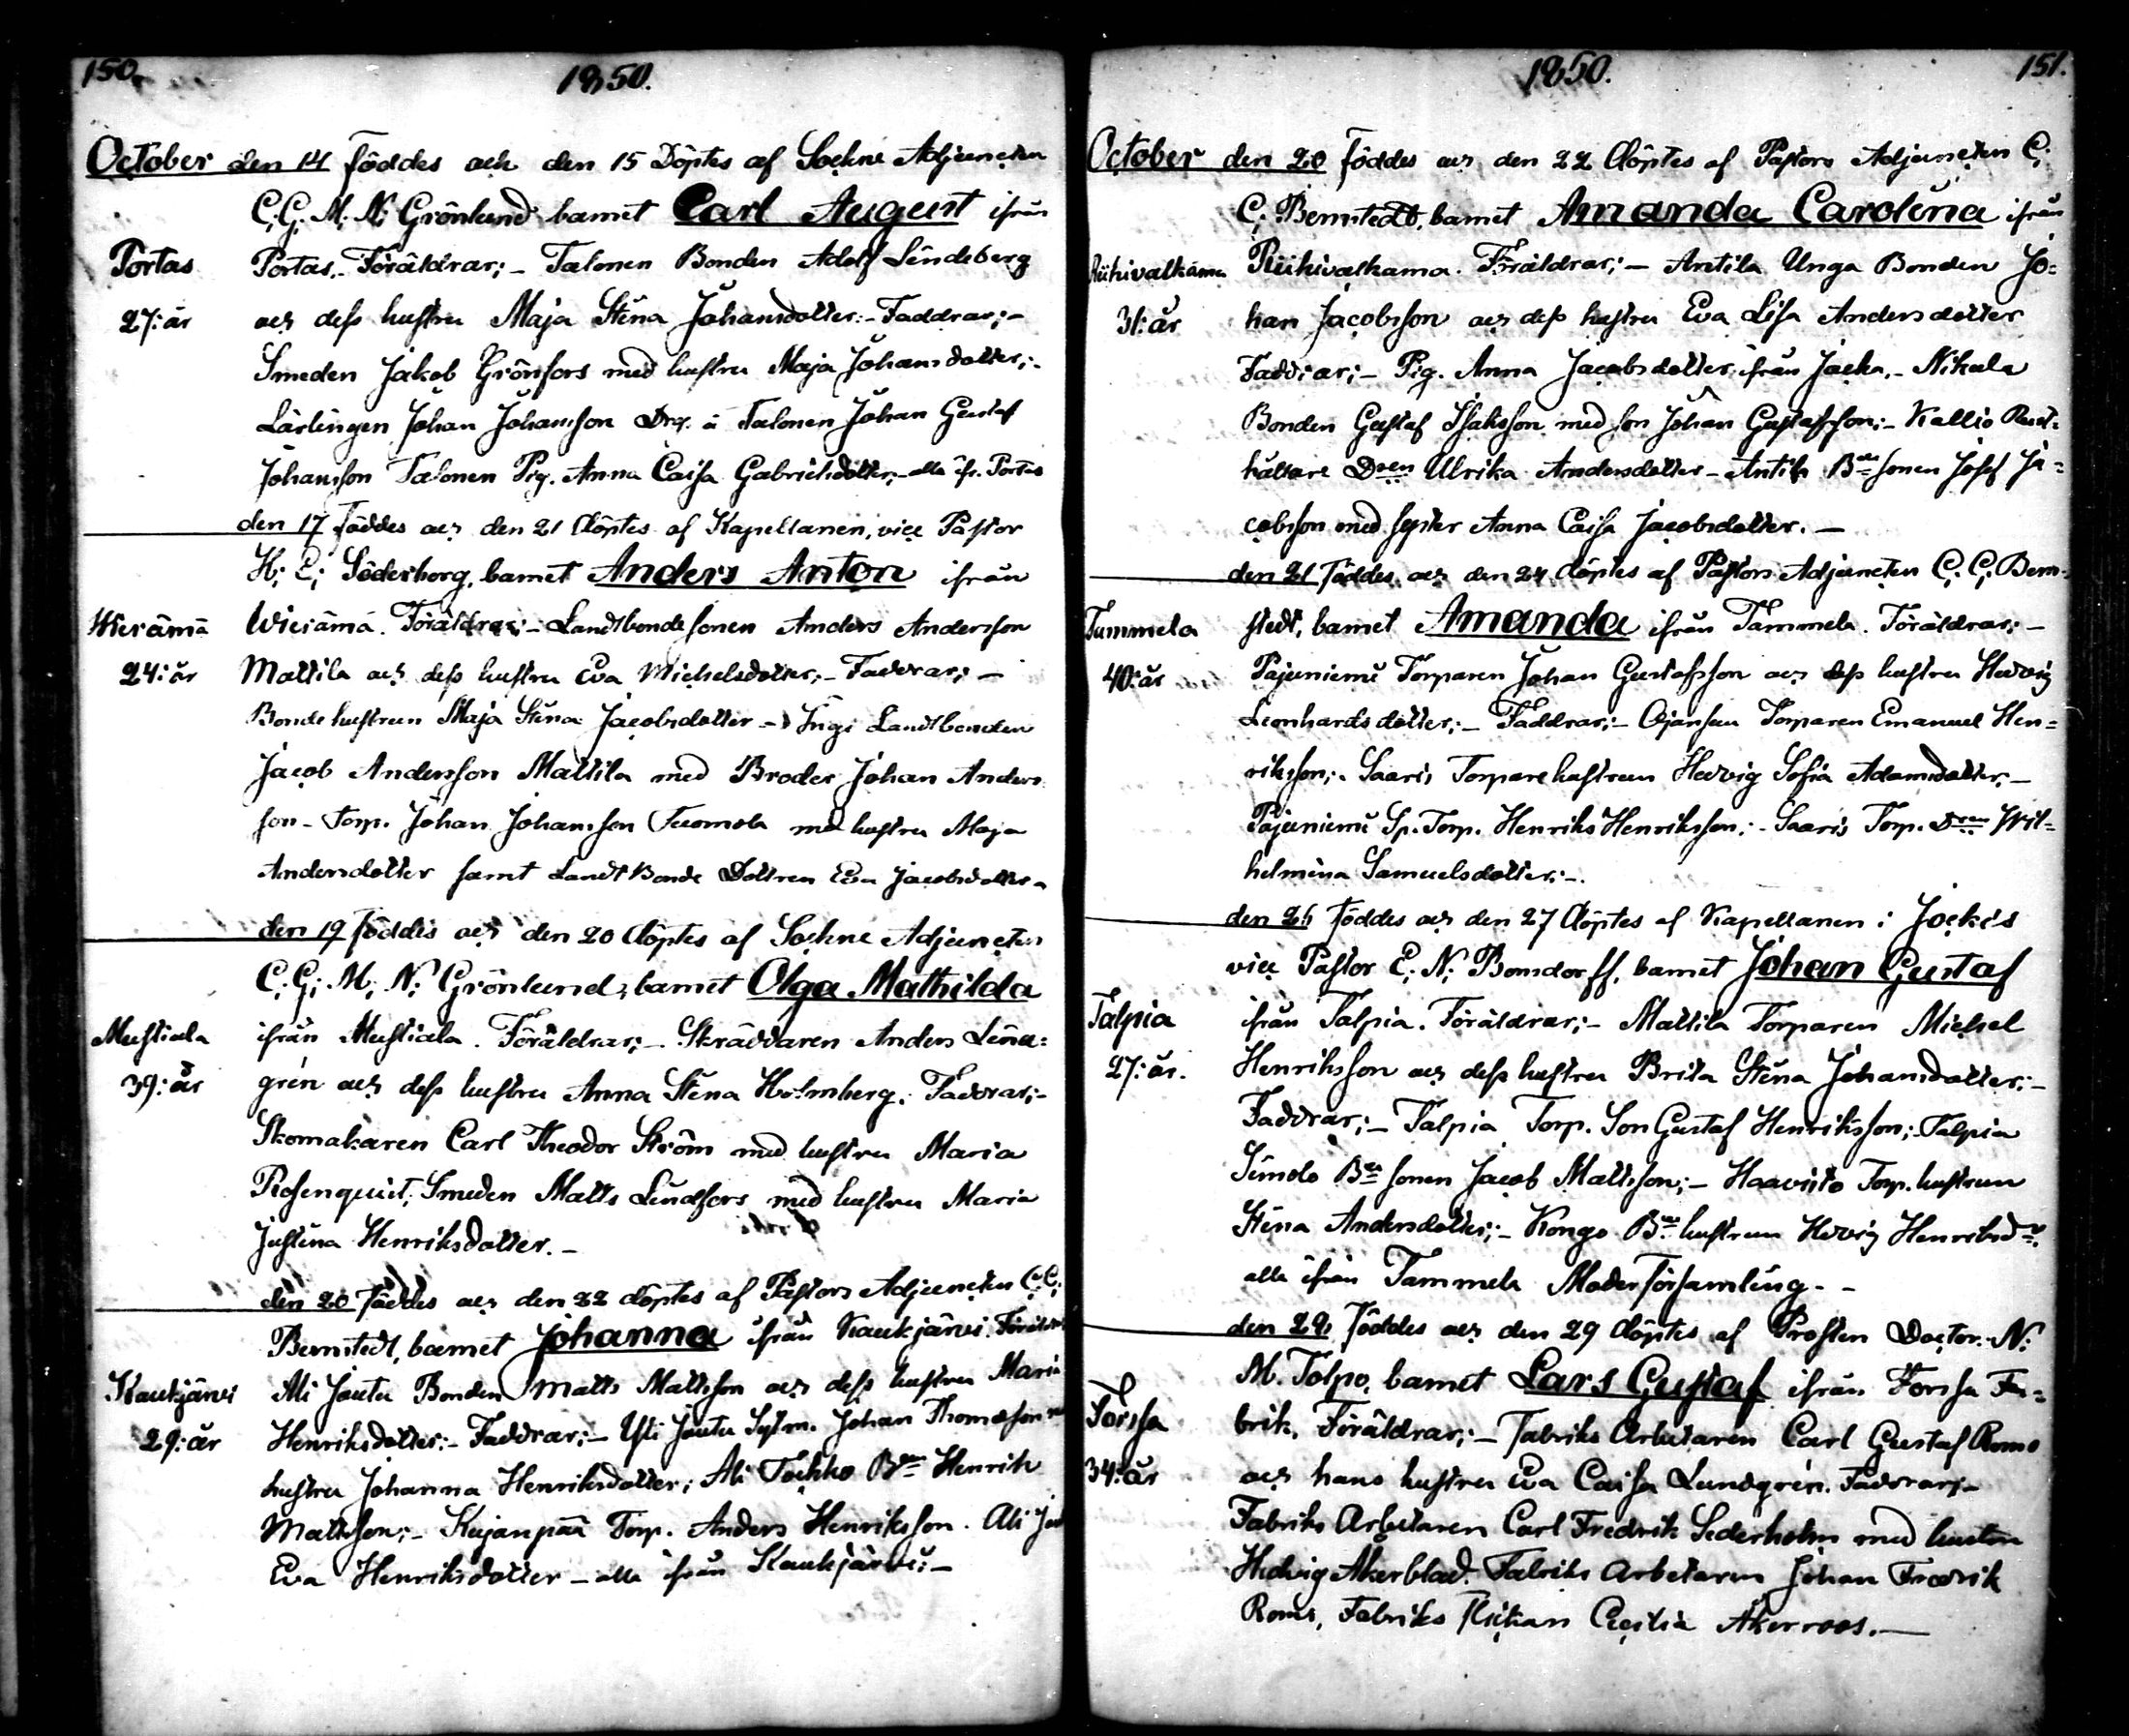 150.
1850.
October den 14 föddes och den 15 Döptes af Sockne Adjuncten
C. G. M. N. Grönlund barnet Carl August ifrån
Portas
Portas. Föräldrar; - Talonen Bonden Adolf Lindeberg
27: år
och dess hustru Maja Stina Johansdotter:- Faddrar;-
Smeden Jakob Grönfors med hustru Maja Johansdotter;-
Lärlingen Johan Johansson Drg. å Talonen Johan Gustaf
Johansson Talonen Pig. Anna Caisa Gabrielsdotter;- alla ifr. Portas
den 17 föddes och den 21 döptes af Kapellanen, vice Pastor
H; E; Söderborg, barnet Anders Anton ifrån
Wierämä
Wierämä. Föräldrar;- Landtbondesonen Anders Andersson
24: år
Mattila och dess hustru Eva Michelsdotter;- Faddrar; -
Bonde hustrun Maja Stina Jacobsdotter - Ingi Landtbonden
Jacob Andersson Mattila med Broder Johan Anders
son - Torp. Johan Johansson Tuomola med hustru Maja
Andersdotter samt Landt Bonde Dottren Eva Jacobsdotter
den 19 föddes och den 20 döptes af Sockne Adjuncten
C. G; M; N; Grönlund, barnet Olga Mathilda
Mustiala
ifrån Mustiala. Föräldrar;- Skräddaren Anders Lind=
39: år
grén och dess hustru Anna Stina Holmberg. Faddrar;-
Skomakaren Carl Theodor Ström med hustru Maria
Rosenquist; Smeden Matts Lindfors med hustru Maria
Justina Henriksdotter. -
den 20 föddes och den 22 döptes af Pastors Adjuncten C; C;
Bernstedt, barnet Johanna ifrån Kaukjärvi.
Kaukjärvi
Ali Jautu Bonden Matts Mattsson och dess hustru Maria
29: år
Henriksdotter;- Faddrar;- Yli Jautu Sytm. Johan Thomasson
hustru Johanna Henriksdotter; Ali Tockko Bden Henrik
Mattsson;- Kujanpää Torp. Anders Henriksson. Ali
Eva Henriksdotter - alla ifrån Kaukjärvi;-
1850.
151.
October den 20 föddes och den 22 döptes af Pastors Adjuncten C.
C; Bernstedt, barnet Amanda Carolina ifrån
Riihivalkama
Riihivalkama. Föräldrar; - Antila Unga Bonden Jo=
31: år
han Jacobsson och dess hustru Eva Lisa Andersdotter
Faddrar;- Pig. Anna Jacobsdotter ifrån Jacka,- Nikula
Bonden Gustaf Isaksson med son Johan Gustafsson;- Kallio Rust=
hållare Dren Ulrika Andersdotter - Antila Bde sonen Josef Ja=
cobsson med syster Anna Caisa Jacobsdotter. -
den 21 föddes och den 24 döptes af Pastors Adjuncten C; C; Bern-
Tammela
stedt, barnet Amanda ifrån Tammela. Föräldrar; -
40: år
Pajuniemi Torparen Johan Gustafsson och dess hustru Hedvig
Leonhardsdotter;- Faddrar;- Ojansuu Torparen Emanuel Hen=
riksson;- Saaris Torpare hustrun Hedvig Sofia Adamsdotter;-
Pajuniemi Sp. Torp. Henriks Henriksson;- Saaris Torp. Dren Wil=
helmina Samuelsdotter;-.
den 26 föddes och den 27 döptes af Kapellanen i Jockis
vice Pastor E; N; Bonsdorff, barnet Johan Gustaf
Talpia
ifrån Talpia. Föräldrar;- Mattila Torparen Michel
27: år.
Henriksson och dess hustru Brita Stina Johansdotter;-
Faddrar;- Talpia Torp. Son Gustaf Henriksson; Talpia
Simola Bde sonen Jacob Mattsson;- Haavisto Torp. hustrun
Stina Andersdotter;- Kongo Bde hustrun Hedvig Henriksdr.
alla ifrån Tammela Moderförsamling. -
den 29 föddes och den 29 döptes af Prosten Doctor N.
M. Tolpo, barnet Lars Gustaf ifrån Forssa Fa=
Forssa
brik. Föräldrar;- Fabriks Arbetaren Carl Gustaf Roms
34: år
och hans hustru Eva Caisa Lundgrén. Faddrar;-
Fabriks Arbetaren Carl Fredrik Sederholm med hustru
Hedvig Åkerblad. Fabriks Arbetaren Johan Fredrik
Roms, Fabriks Flickan Cecilia Åkerroos. -